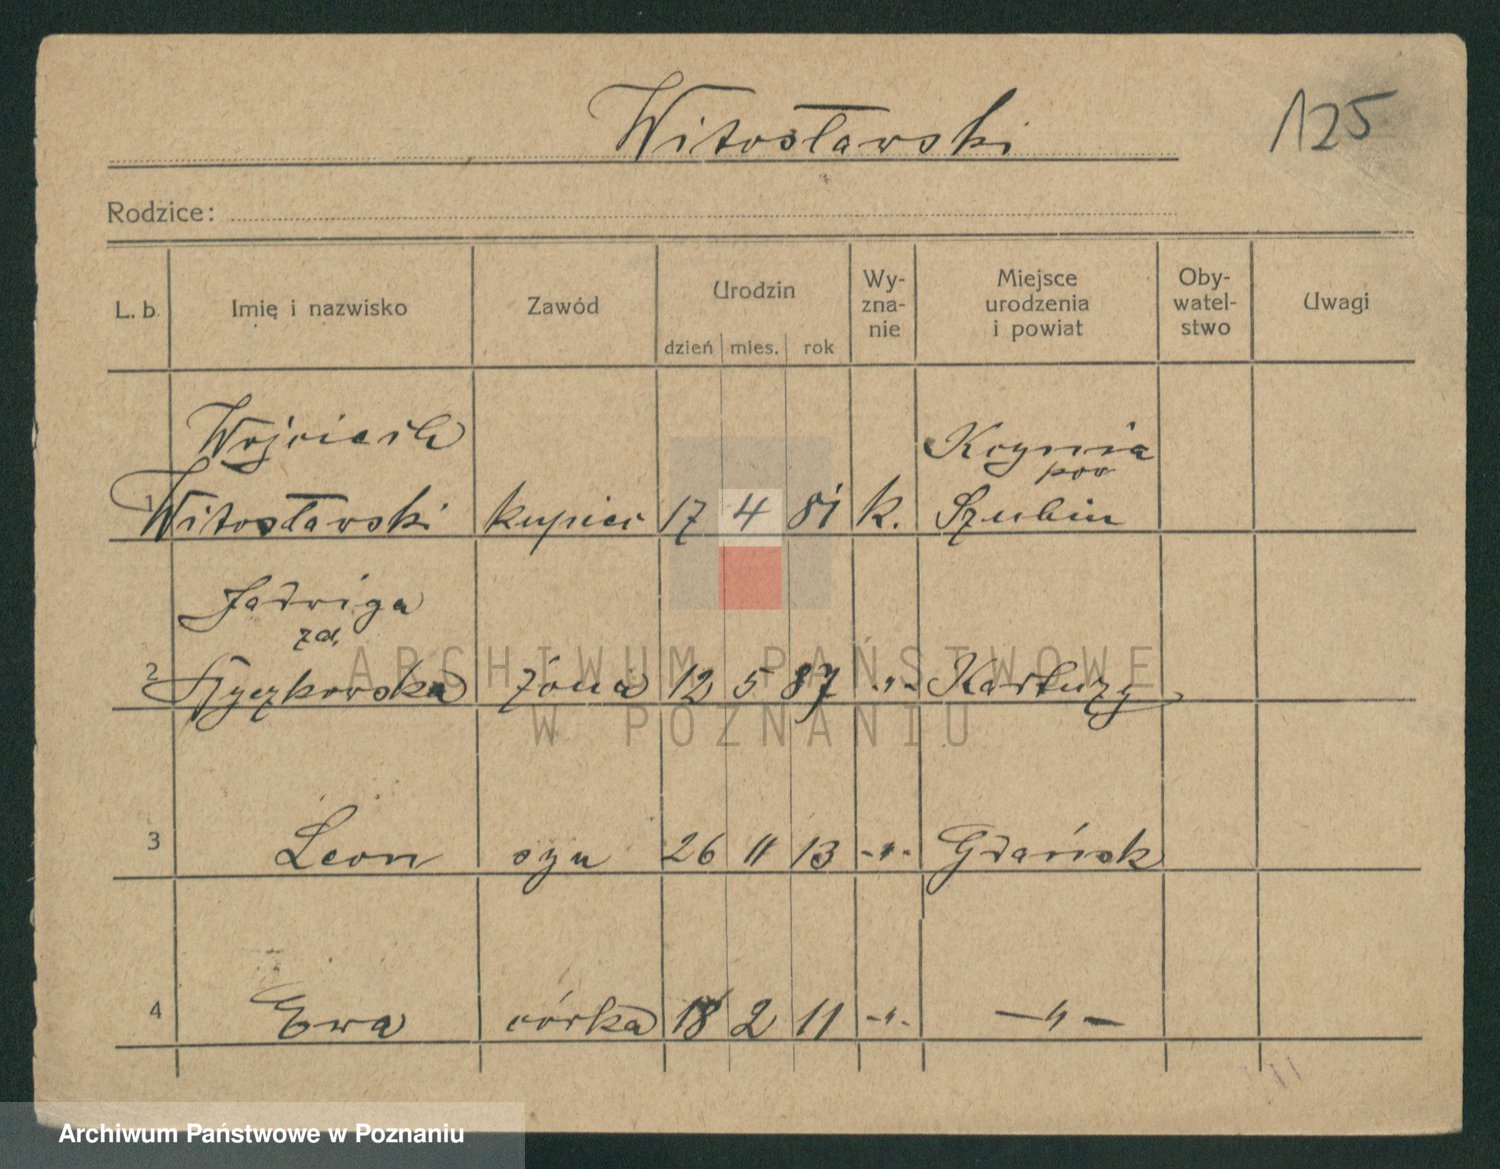 Witosławski
125
Rodzice:
L. b.
Imię i nazwisko
Zawód
Urodzin
dzień mies. rok
Wy-
zna-
nie
Miejsce
urodzenia
i powiat
Oby-
watel-
stwo
Uwagi
Wojciech
Kcynia
pow
1 Witosławski kupiec 17 4 81 k. Szubin
Jadwiga
zd.
2 żona 12 5 87 -"- Kartuzy
3 Leon syn 26 11 13 -"- Gdańsk
4 Ewa córka 18 2 11 -"- -"-
ARCHIWUM PAŃSTWOWE
W POZNANIU
Archiwum Państwowe w Poznaniu